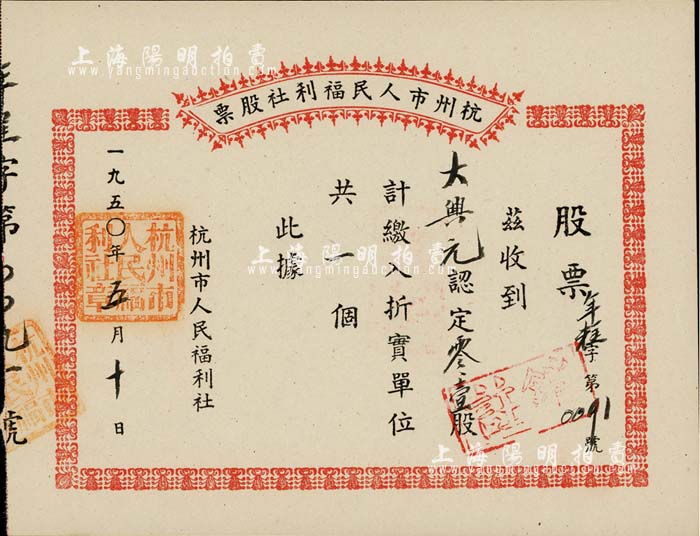 杭州市人民福利社股票
股票
字第0091號
茲收到
大興元認定零壹股
計繳入折實單位
共一個
此據
杭州市人民福利社
一九五〇年五月十日
杭州市人民福利社章
字第00九一號
上海陽明拍賣
www.yangmingauction.com
上海陽明拍賣
www.yangmingauction.com
上海陽明拍賣
www.yangmingauction.com